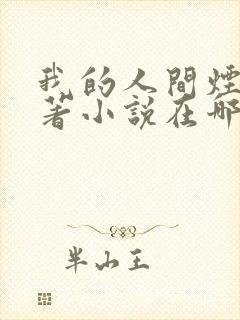 我的人間煙
著小說在哪
半山王